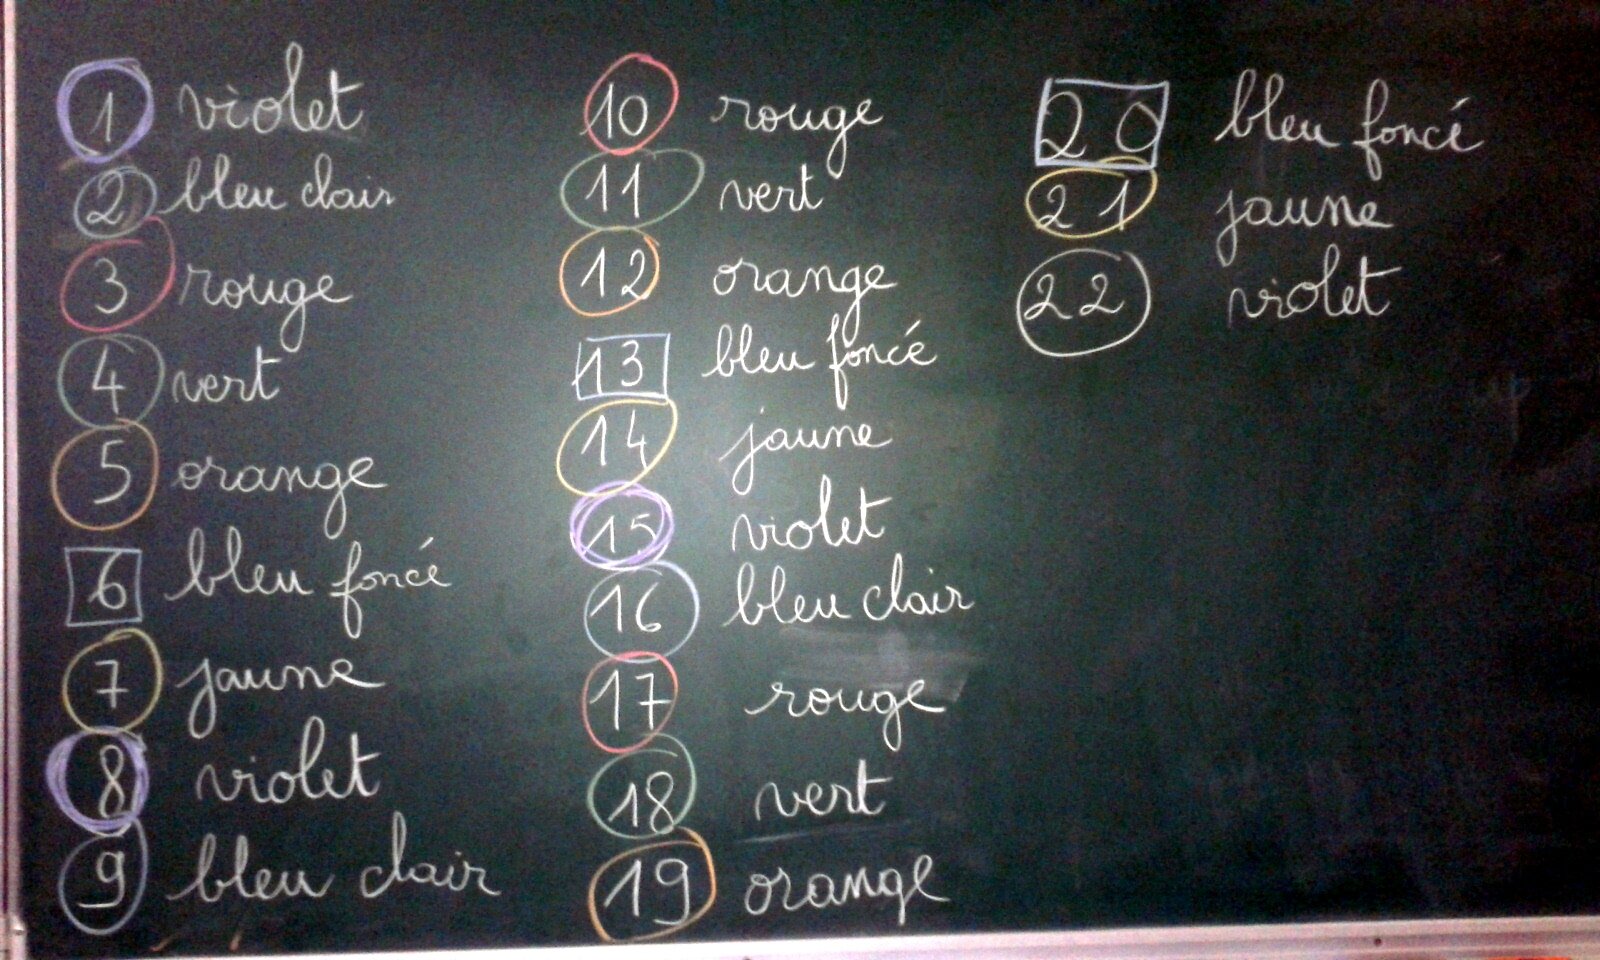 1 violet
2 bleu clair
3 rouge
4 vert
5 orange
6 bleu foncé
7 jaune
8 violet
9 bleu clair
10 rouge
11 vert
12 orange
13 bleu foncé
14 jaune
15 violet
16 bleu clair
17 rouge
18 vert
19 orange
20 bleu foncé
21 jaune
22 violet